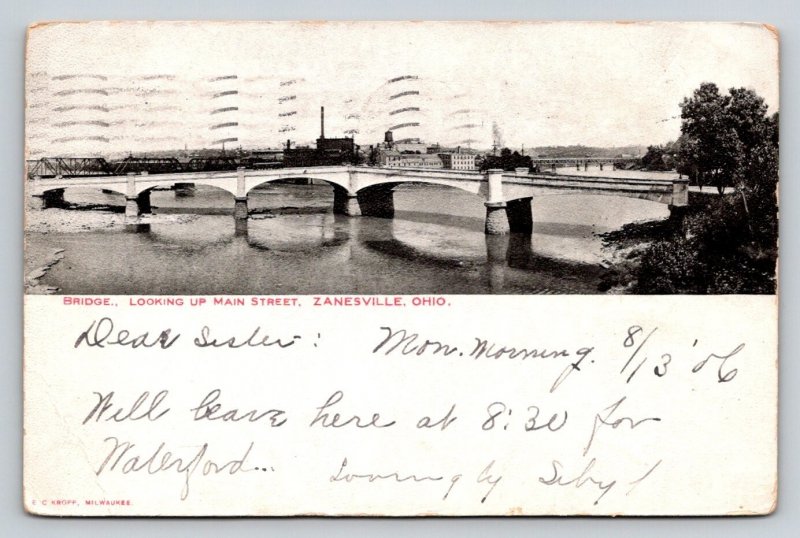 BRIDGE., LOOKING UP MAIN STREET, ZANESVILLE, OHIO.
Dear Sister: Mon. Morning. 8/13 '06
Will leave here at 8:30 for
Waterford...
Lovingly Sibyl
E. C. KROPP, MILWAUKEE.